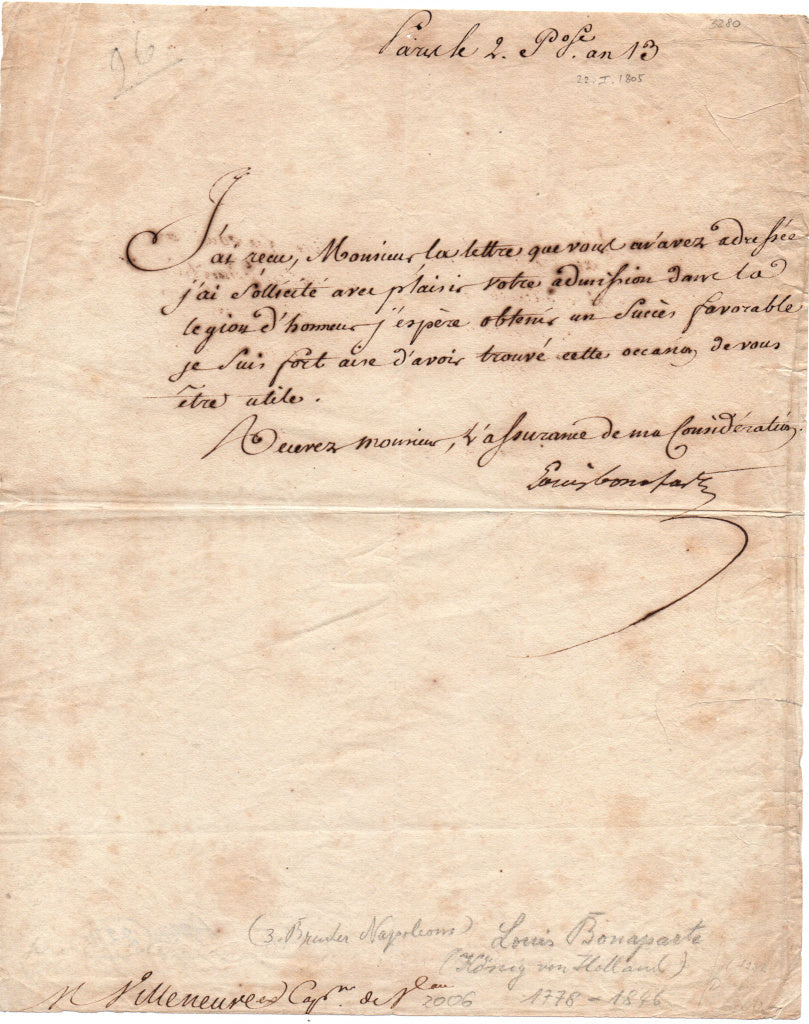 3280
26
Paris le 2. P.ôse. an 13
22. I. 1805
J'ai recu, Monsieur la lettre que vous m'avez adressée
j'ai sollicité avec plaisir votre admission dans la
legion d'honneur j'espère obtenir un succès favorable
je suis fort aise d'avoir trouvé cette occasion de vous
être utile.
Recevez monsieur, l'assurance de ma Considération.
Louis bonaparte
(3. Bruder Napoleons) Louis Bonaparte
(König von Holland)
1778 – 1846
2006
M Villeneuve Cap.ne de